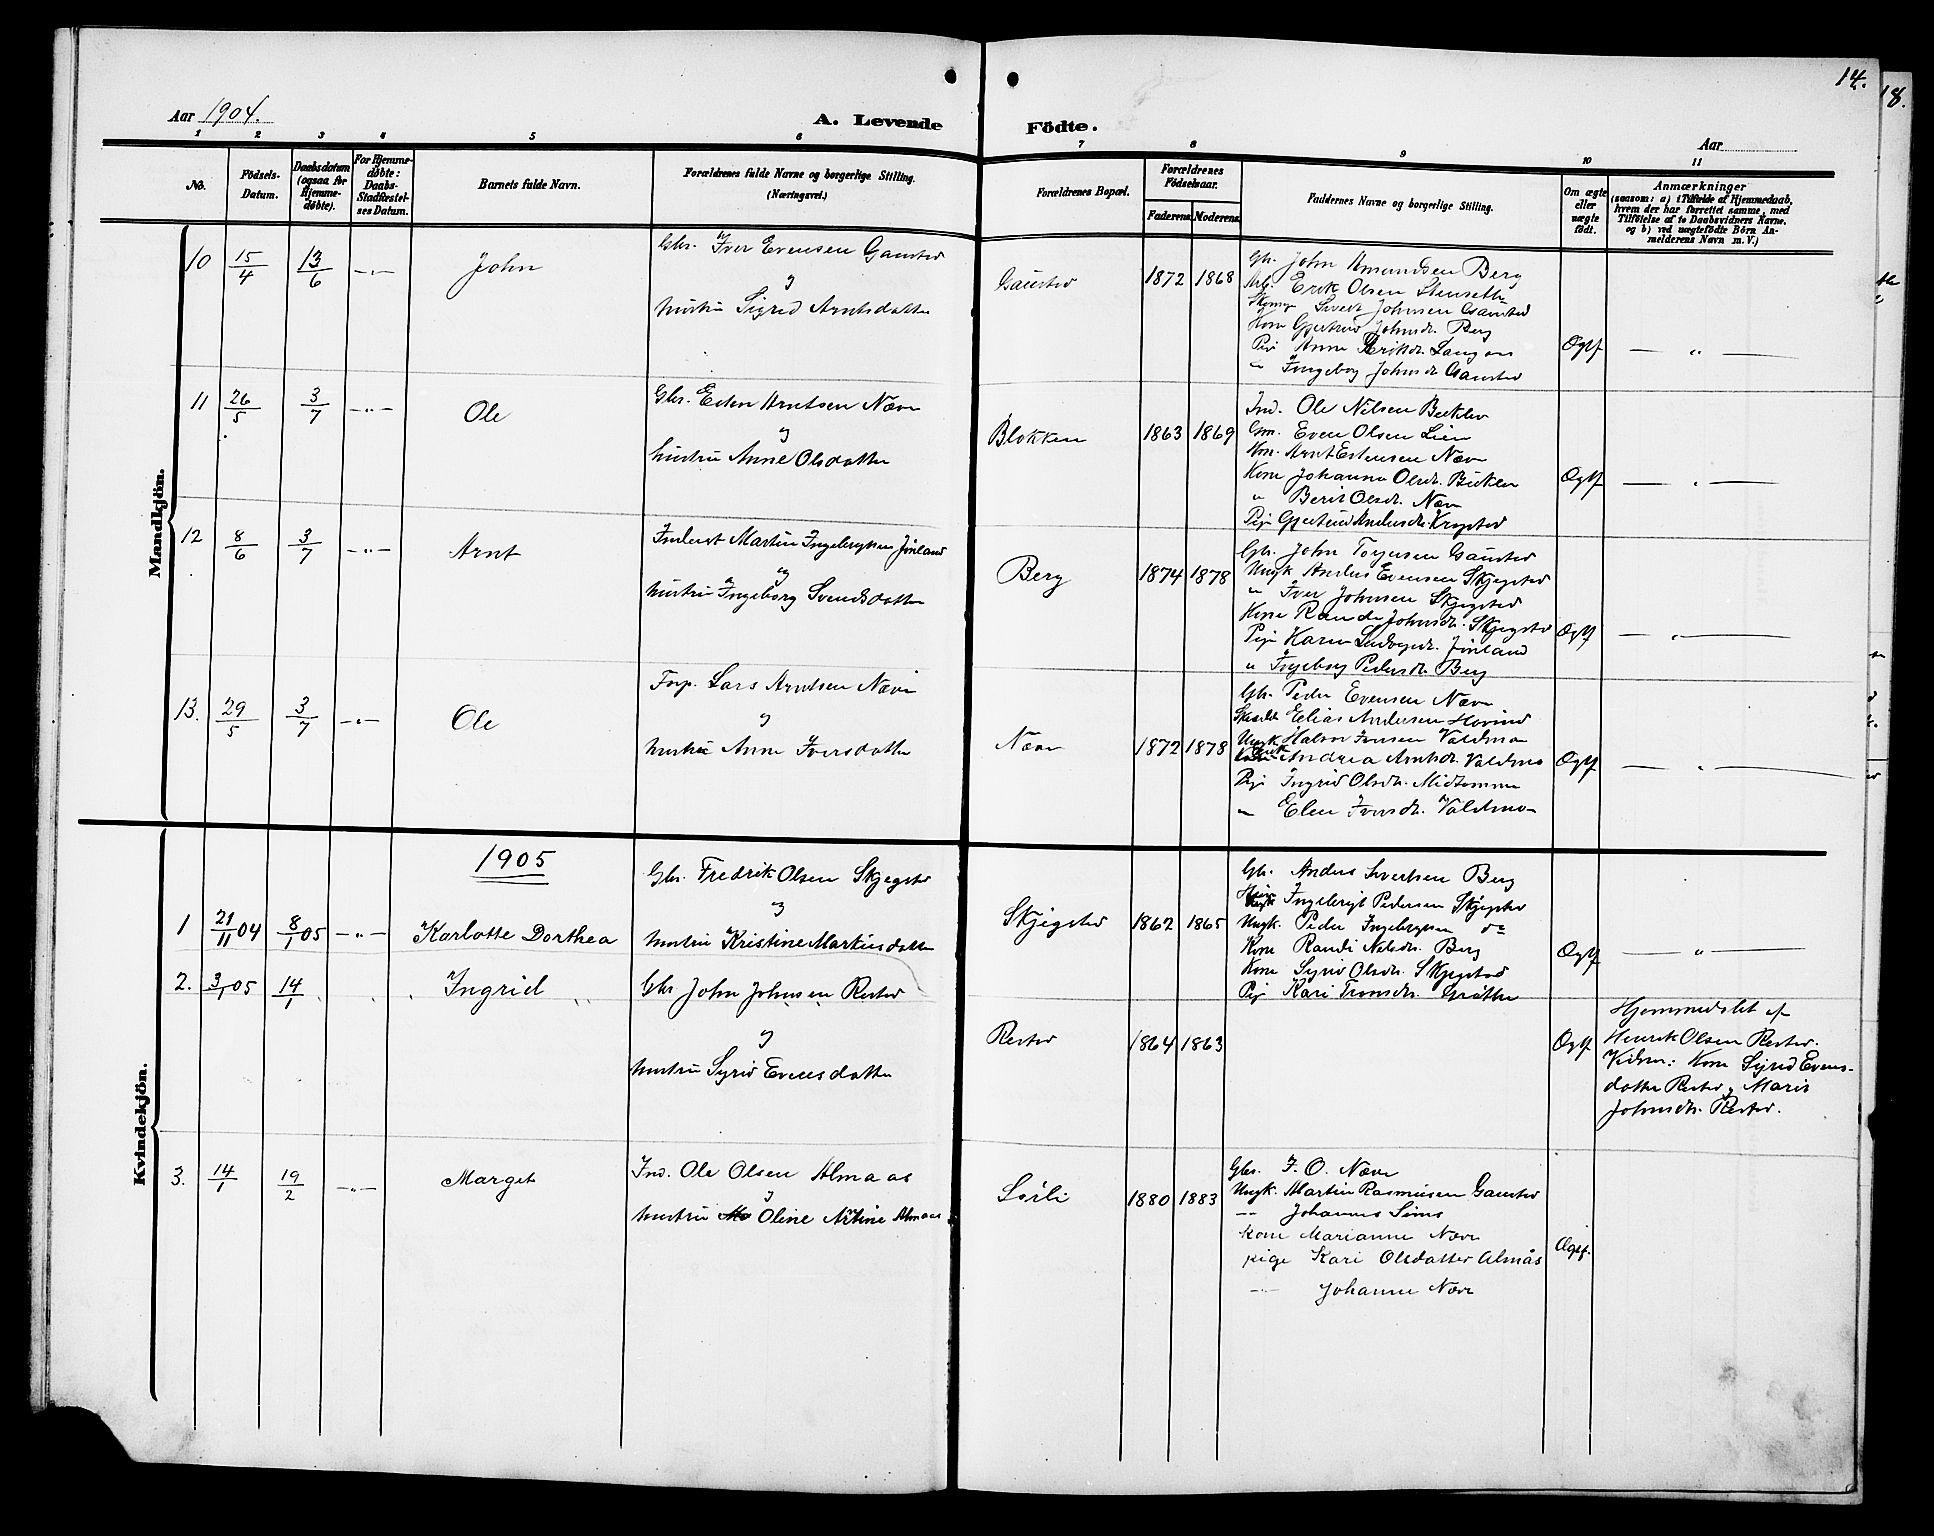 14.
18.
Aar 1904.
A. Levende Födte.
Aar
1 2 3 4 5 6 7 8 9 10 11
No.
Födsels-Datum.
Daabsdatum (ogsaa for Hjemme-döbte).
For Hjemme-döbte: Daabs-Stadfæstel-ses Datum.
Barnets fulde Navn.
Forældrenes fulde Navne og borgerlige Stilling. (Næringsvei.)
Forældrenes Bopæl.
Forældrenes Födselsaar.
Faderens. Moderens.
Faddernes Navne og borgerlige Stilling.
Om ægte eller uægte födt.
Anmærkninger
(saasom: a) i Tilfælde af Hjemmedaab,
hvem der har forrettet samme, med
Tilföielse af to Daabsvidners Navne.
og b) ved uægtefödte Börn An-
melderens Navn m. V.)
Mandkjön.
10 15/4 13/6 —"— John
Gbr. Iver Evensen Gausted
og
hustru Sigrid Arntsdatter
Gausted 1872 1868
Gbr. John Amundsen Berg
Arb. Erik Olsen Stenseth
Sivert Johnsen Gausted
Kone Gjertrud Johnsdr. Berg
Pige Anne Eriksdr.
" Ingeborg Johnsdr. Gausted
Ægtef — " —
11 26/5 3/7 —"— Ole
Gbr. Esten Arntsen Næve
og
hustru Anne Olsdatter
Blokken 1863 1869
Ind. Ole Nilsen
Gm. Even Olsen Lien
Arnt Estensen Næve
Kone Johanna Olsdr.
" Berit Olsdr. Næve
Pige Gjertrud Andersdr.
Ægtef — " —
12 8/6 3/7 —"— Arnt
Inderst Martin Ingebrigtsen Jönland
og
hustru Ingeborg Svendsdatter
Berg 1874 1878
Gbr. John Torgersen Gausted
Ungk Anders Evensen Skjegsted
" Iver Johnsen Skjegsted
Kone Randi Johnsdr. Skjegsted
Pige Karen Jönland
" Ingeborg Pedersdr. Berg
Ægtef — " —
13. 29/5 3/7 —"— Ole
Forp. Lars Arntsen Næve
og
hustru Anne Iversdatter
Næve 1872 1878
Gbr. Peder Evensen Næve
Elias Andersen Hovind
Ungk. Halvor Jensen Valdmo
Andrea Arntsdr. Valdmo
Pige Ingrid Olsdr. Midtømme
" Elen Iversdr. Valdmo
Ægtef — " —
Kvindekjön.
1905
1 21/11 04 8/1 05 —"— Karlotte Dorthea
Gbr. Fredrik Olsen Skjegsted
og
hustru Kristine Martinusdatter
Skjegsted 1862 1865
Gbr. Anders Sivertsen Berg
Ingebrigt Pedersen Skjegsted
Ungk. Peder Ingebrigtsen do
Kone Randi Nilsdr. Berg
Kone Sigrid Olsdr. Skjegsted
Pige Kari Tronsdr. Gröthe
Ægtef — " —
2. 3/1 05 14/1 " " Ingrid
Gbr John Johnsen Rested
og
hustru Sigrid Evensdatter
Rested 1864 1863 Ægtef
Hjemmedöbt af
Henrik Olsen Rested.
Vidner: Kone Sigrid Evens-
datter Rested og Marit
Johnsdr. Rested.
3. 14/1 19/2 —"— Marget
Ind. Ole Olsen Almaas
og
hustru Oline Artine Almaas
Sörli 1880 1883
Gbr. I. O. Næve
Ungk. Martin Rasmusen Gausted
—"— Johannes Sims
Kone Marianne Næve
pige Kari Olsdatter Almås
—"— Johanne Næve
Ægtef.